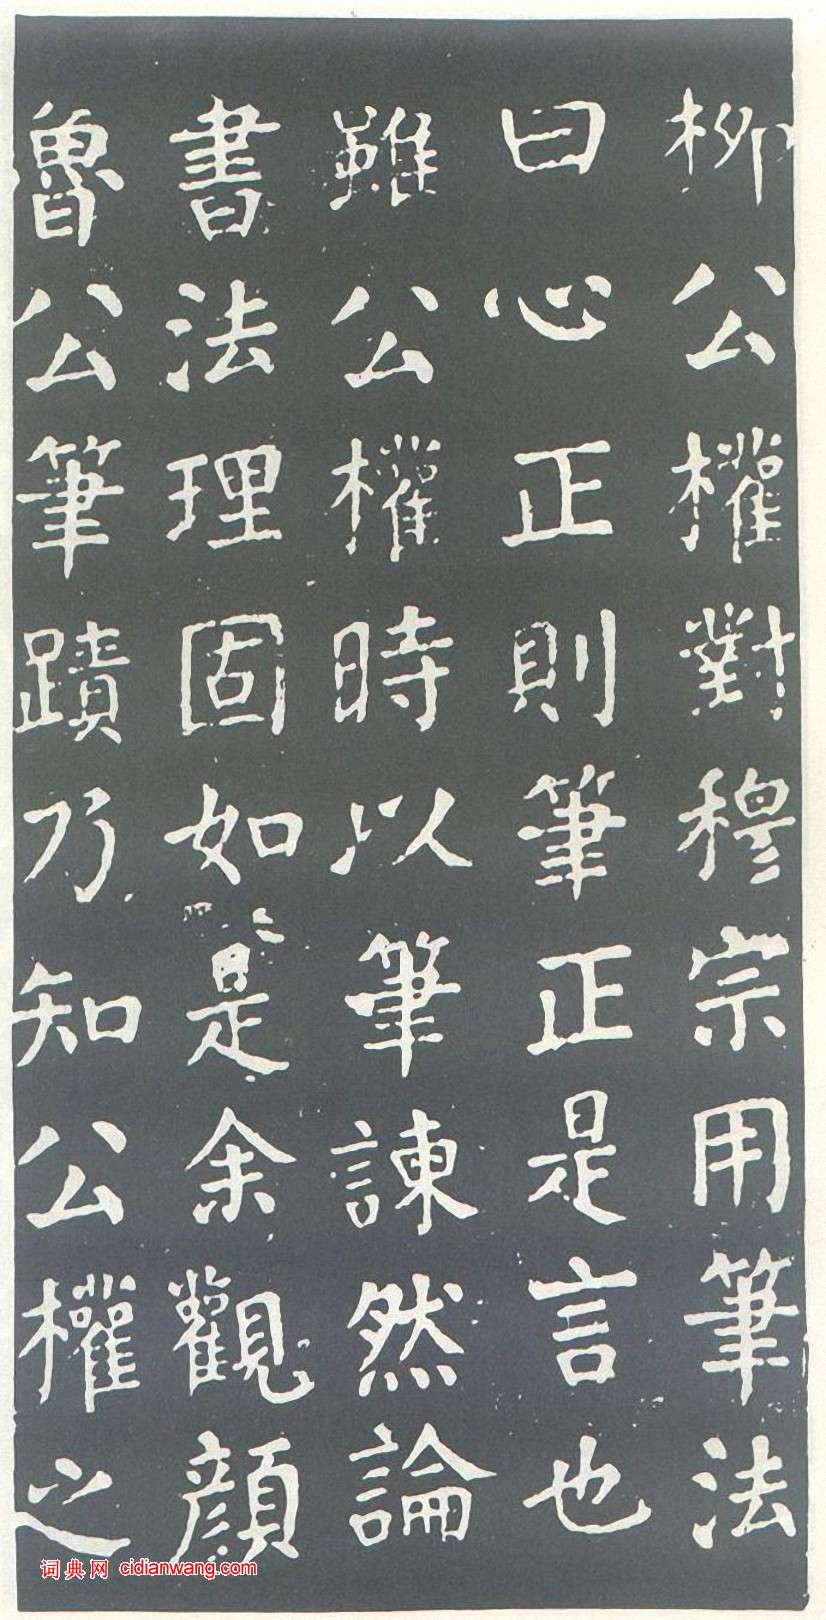 柳公權對穆宗用筆法
曰心正則筆正是言也
雖公權時以筆諫然論
書法理固如是余觀顔
魯公筆蹟乃知公權之
词典网 cidianwang.com